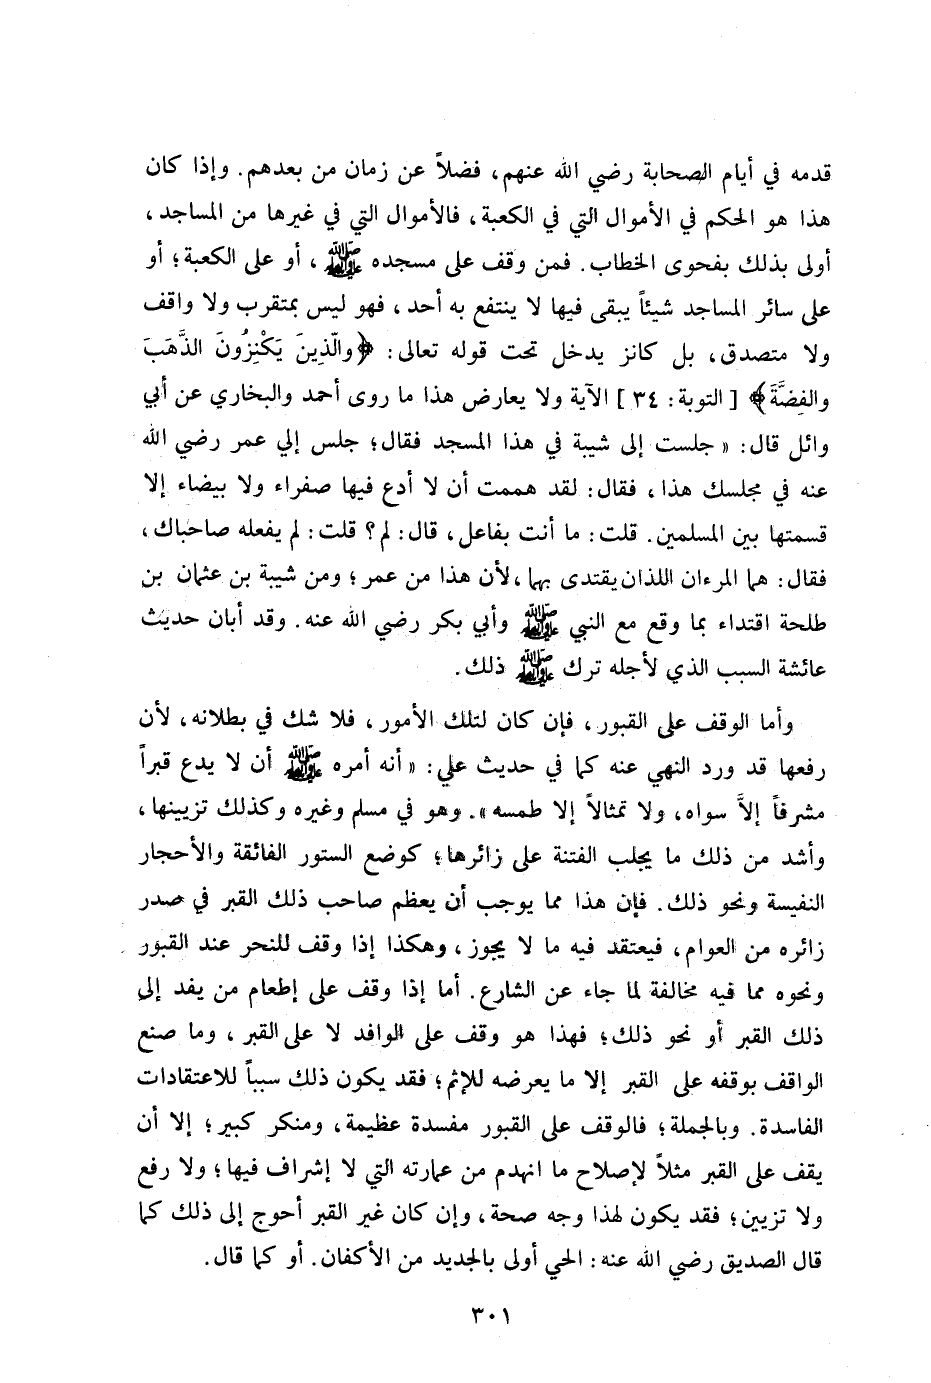 قدمه في أيام الصحابة رضي الله عنهم، فضلاً عن زمان من بعدهم. وإذا كان
هذا هو الحكم في الأموال التي في الكعبة، فالأموال التي في غيرها من المساجد،
أولى بذلك بفحوى الخطاب. فمن وقف على مسجده ﷺ، أو على الكعبة؛ أو
على سائر المساجد شيئاً يبقى فيها لا ينتفع به أحد، فهو ليس بمتقرب ولا واقف
ولا متصدق، بل كانز يدخل تحت قوله تعالى: ﴿والّذِينَ يَكْنِزُونَ الذَّهَبَ
والفِضَّةَ﴾ [ التوبة: ٣٤ ] الآية ولا يعارض هذا ما روى أحمد والبخاري عن أبي
وائل قال: « جلست إلى شيبة في هذا المسجد فقال؛ جلس إلي عمر رضي الله
عنه في مجلسك هذا، فقال: لقد هممت أن لا أدع فيها صفراء ولا بيضاء إلا
قسمتها بين المسلمين. قلت: ما أنت بفاعل، قال: لم؟ قلت: لم يفعله صاحباك،
فقال: هما المرءان اللذان يقتدى بهما، لأن هذا من عمر؛ ومن شيبة بن عثمان بن
طلحة اقتداء بما وقع مع النبي ﷺ وأبي بكر رضي الله عنه. وقد أبان حديث
عائشة السبب الذي لأجله ترك ﷺ ذلك.
وأما الوقف على القبور، فإن كان لتلك الأمور، فلا شك في بطلانه، لأن
رفعها قد ورد النهي عنه كما في حديث علي: « أنه أمره ﷺ أن لا يدع قبراً
مشرفاً إلاَّ سواه، ولا تمثالاً إلا طمسه ». وهو في مسلم وغيره وكذلك تزيينها،
وأشد من ذلك ما يجلب الفتنة على زائرها؛ كوضع الستور الفائقة والأحجار
النفيسة ونحو ذلك. فإن هذا مما يوجب أن يعظم صاحب ذلك القبر في صدر
زائره من العوام، فيعتقد فيه ما لا يجوز، وهكذا إذا وقف للنحر عند القبور
ونحوه مما فيه مخالفة لما جاء عن الشارع. أما إذا وقف على إطعام من يفد إلى
ذلك القبر أو نحو ذلك؛ فهذا هو وقف على الوافد لا على القبر، وما صنع
الواقف بوقفه على القبر إلا ما يعرضه للإثم؛ فقد يكون ذلك سبباً للاعتقادات
الفاسدة. وبالجملة؛ فالوقف على القبور مفسدة عظيمة، ومنكر كبير؛ إلا أن
يقف على القبر مثلاً لإصلاح ما انهدم من عمارته التي لا إشراف فيها؛ ولا رفع
ولا تزيين؛ فقد يكون لهذا وجه صحة، وإن كان غير القبر أحوج إلى ذلك كما
قال الصديق رضي الله عنه: الحي أولى بالجديد من الأكفان. أو كما قال.
٣٠١